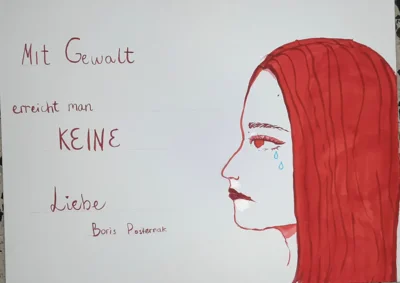 Mit Gewalt
erreicht man
KEINE
Liebe
Boris Pasternak